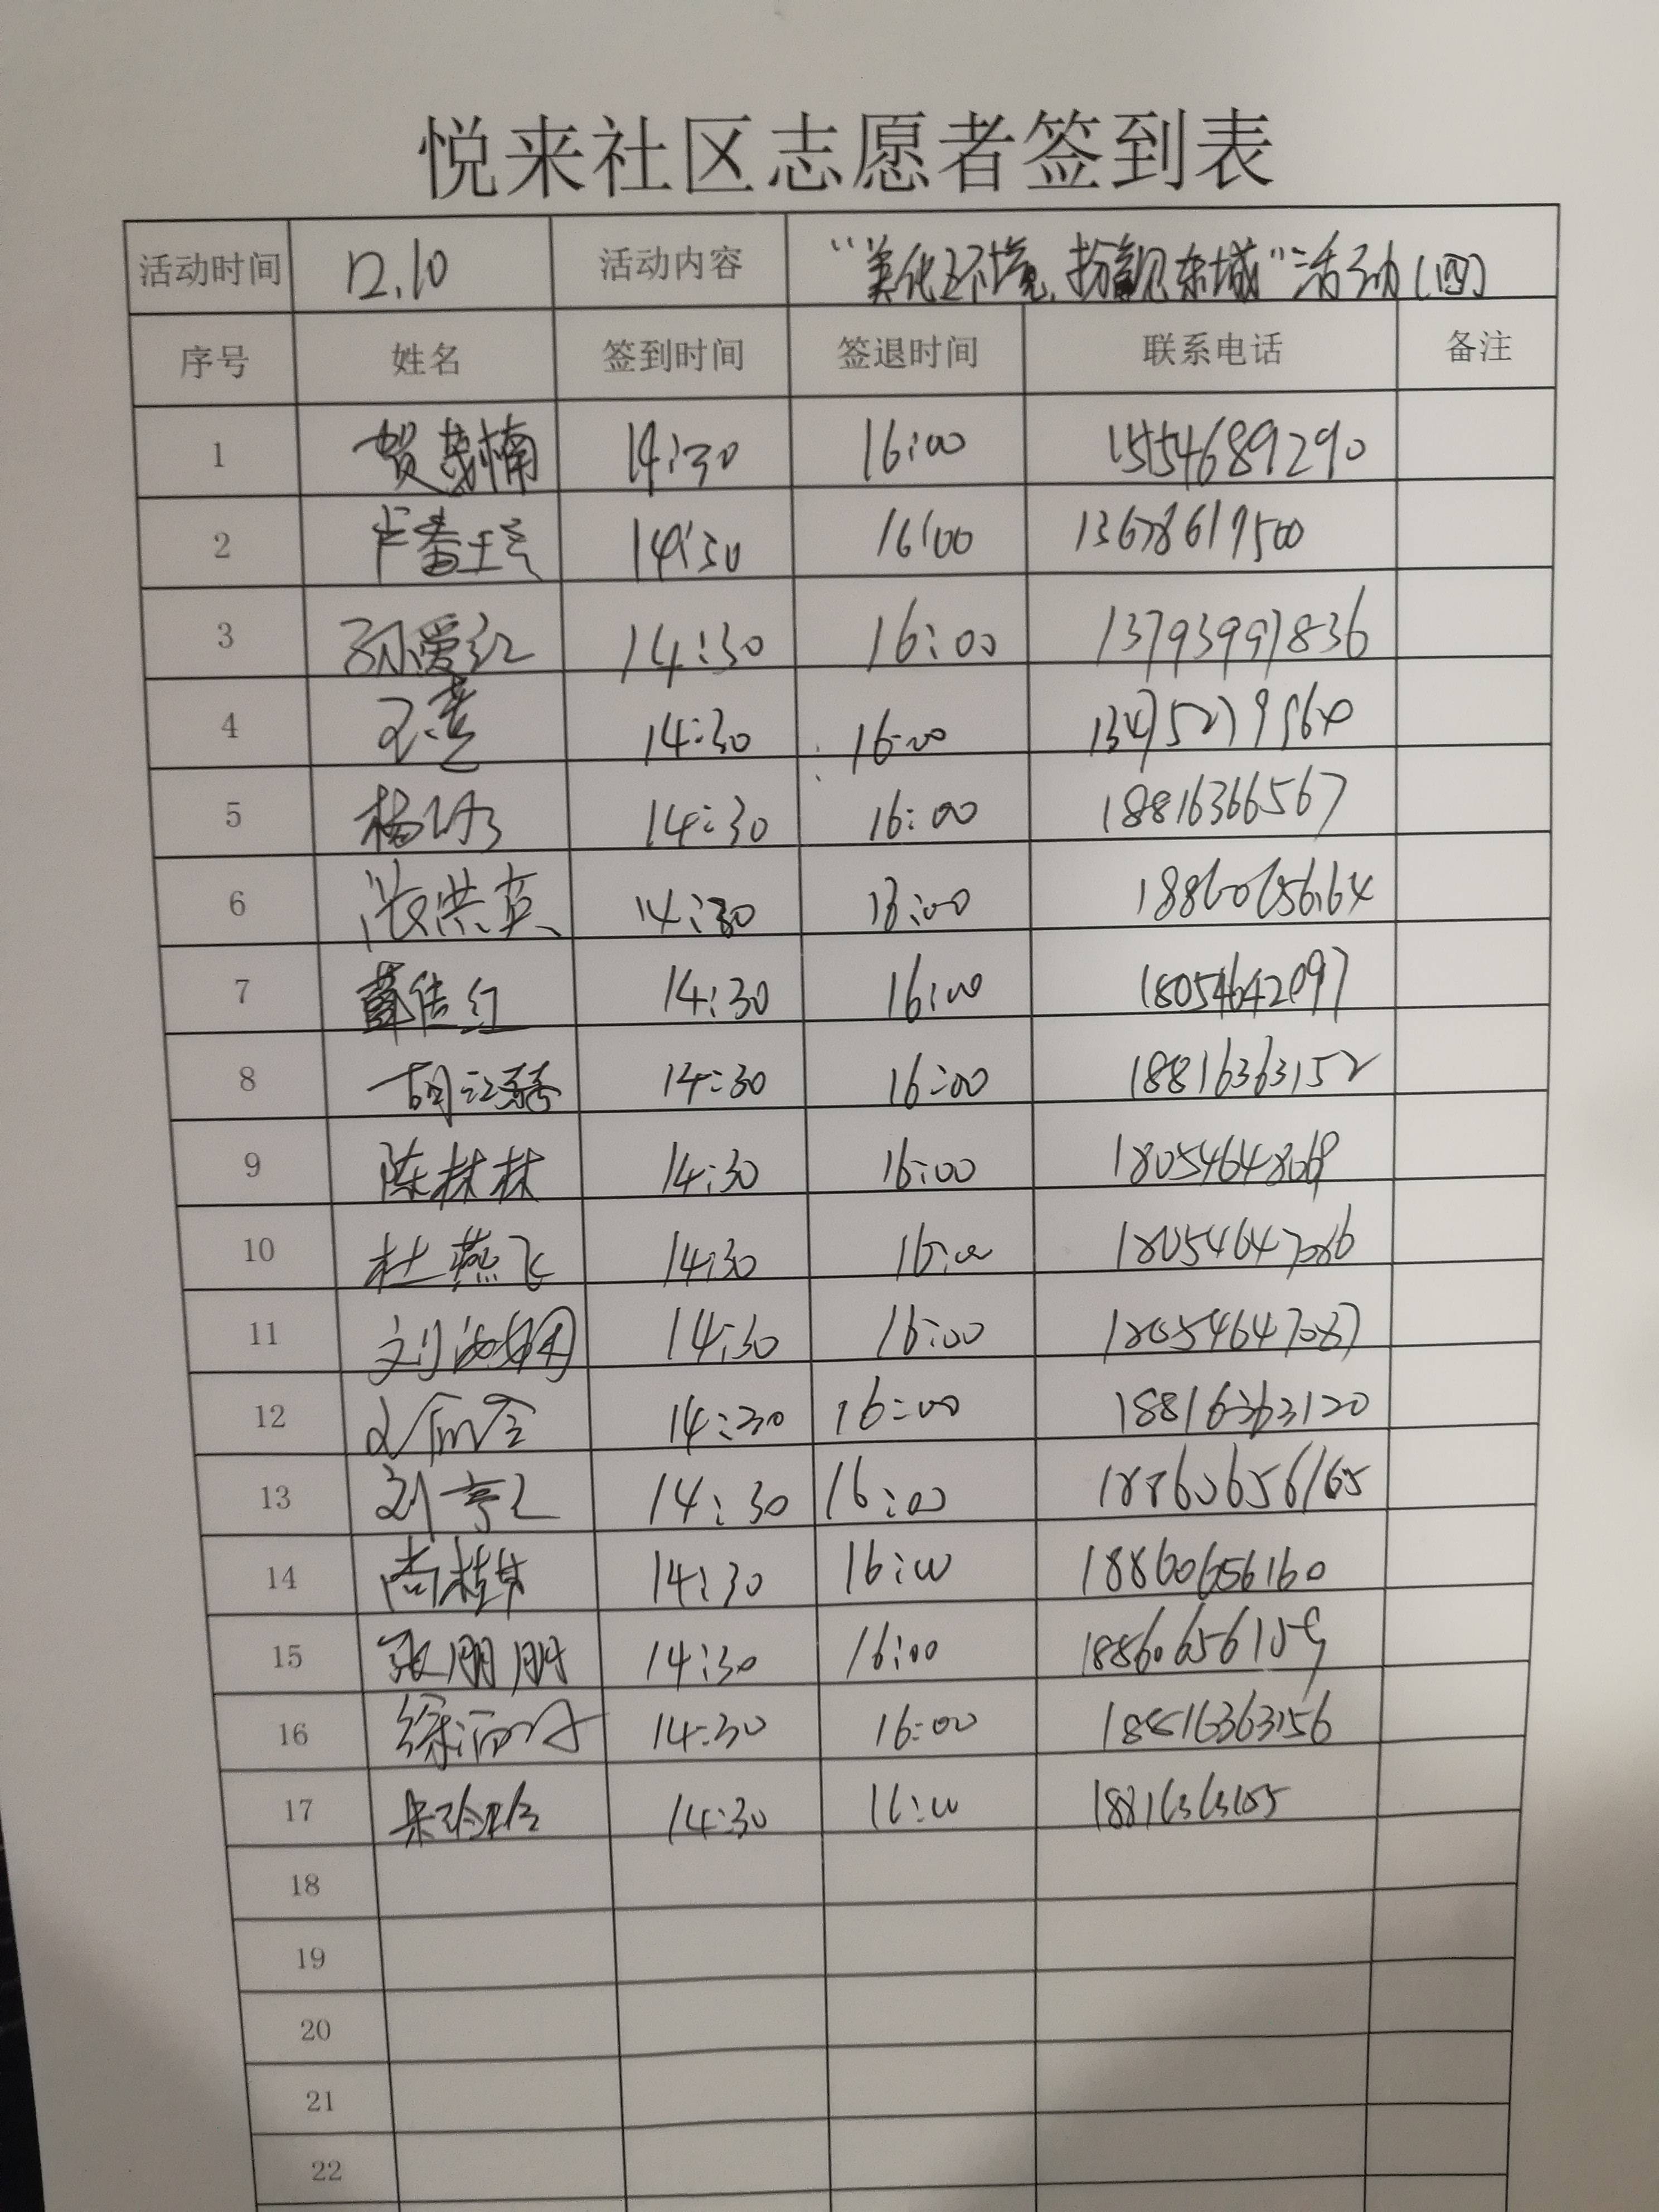 悦来社区志愿者签到表
活动时间 12.10 活动内容 “美化环境,扮靓东城”活动(四)
序号 姓名 签到时间 签退时间 联系电话 备注
1 贺梦楠 14:30 16:00 15154689290
2 14:30 16:00 13678619500
3 孙爱红 14:30 16:00 13793991836
4 14:30 16:00
5 14:30 16:00 18816366567
6 张洪英 14:30 18860656164
7 薛佳红 14:30 16:00 18054642097
8 14:30 16:00 18816363152
9 陈林林 14:30 16:00 18054648069
10 杜燕飞 14:30 16:00 18054647086
11 14:30 16:00 18054647087
12 14:30 16:00 18816363120
13 14:30 16:00 18860656165
14 尚桂华 14:30 16:00 18860656160
15 张朋朋 14:30 16:00 18860656159
16 14:30 16:00 18816363156
17 14:30 16:00 18816363105
18
19
20
21
22